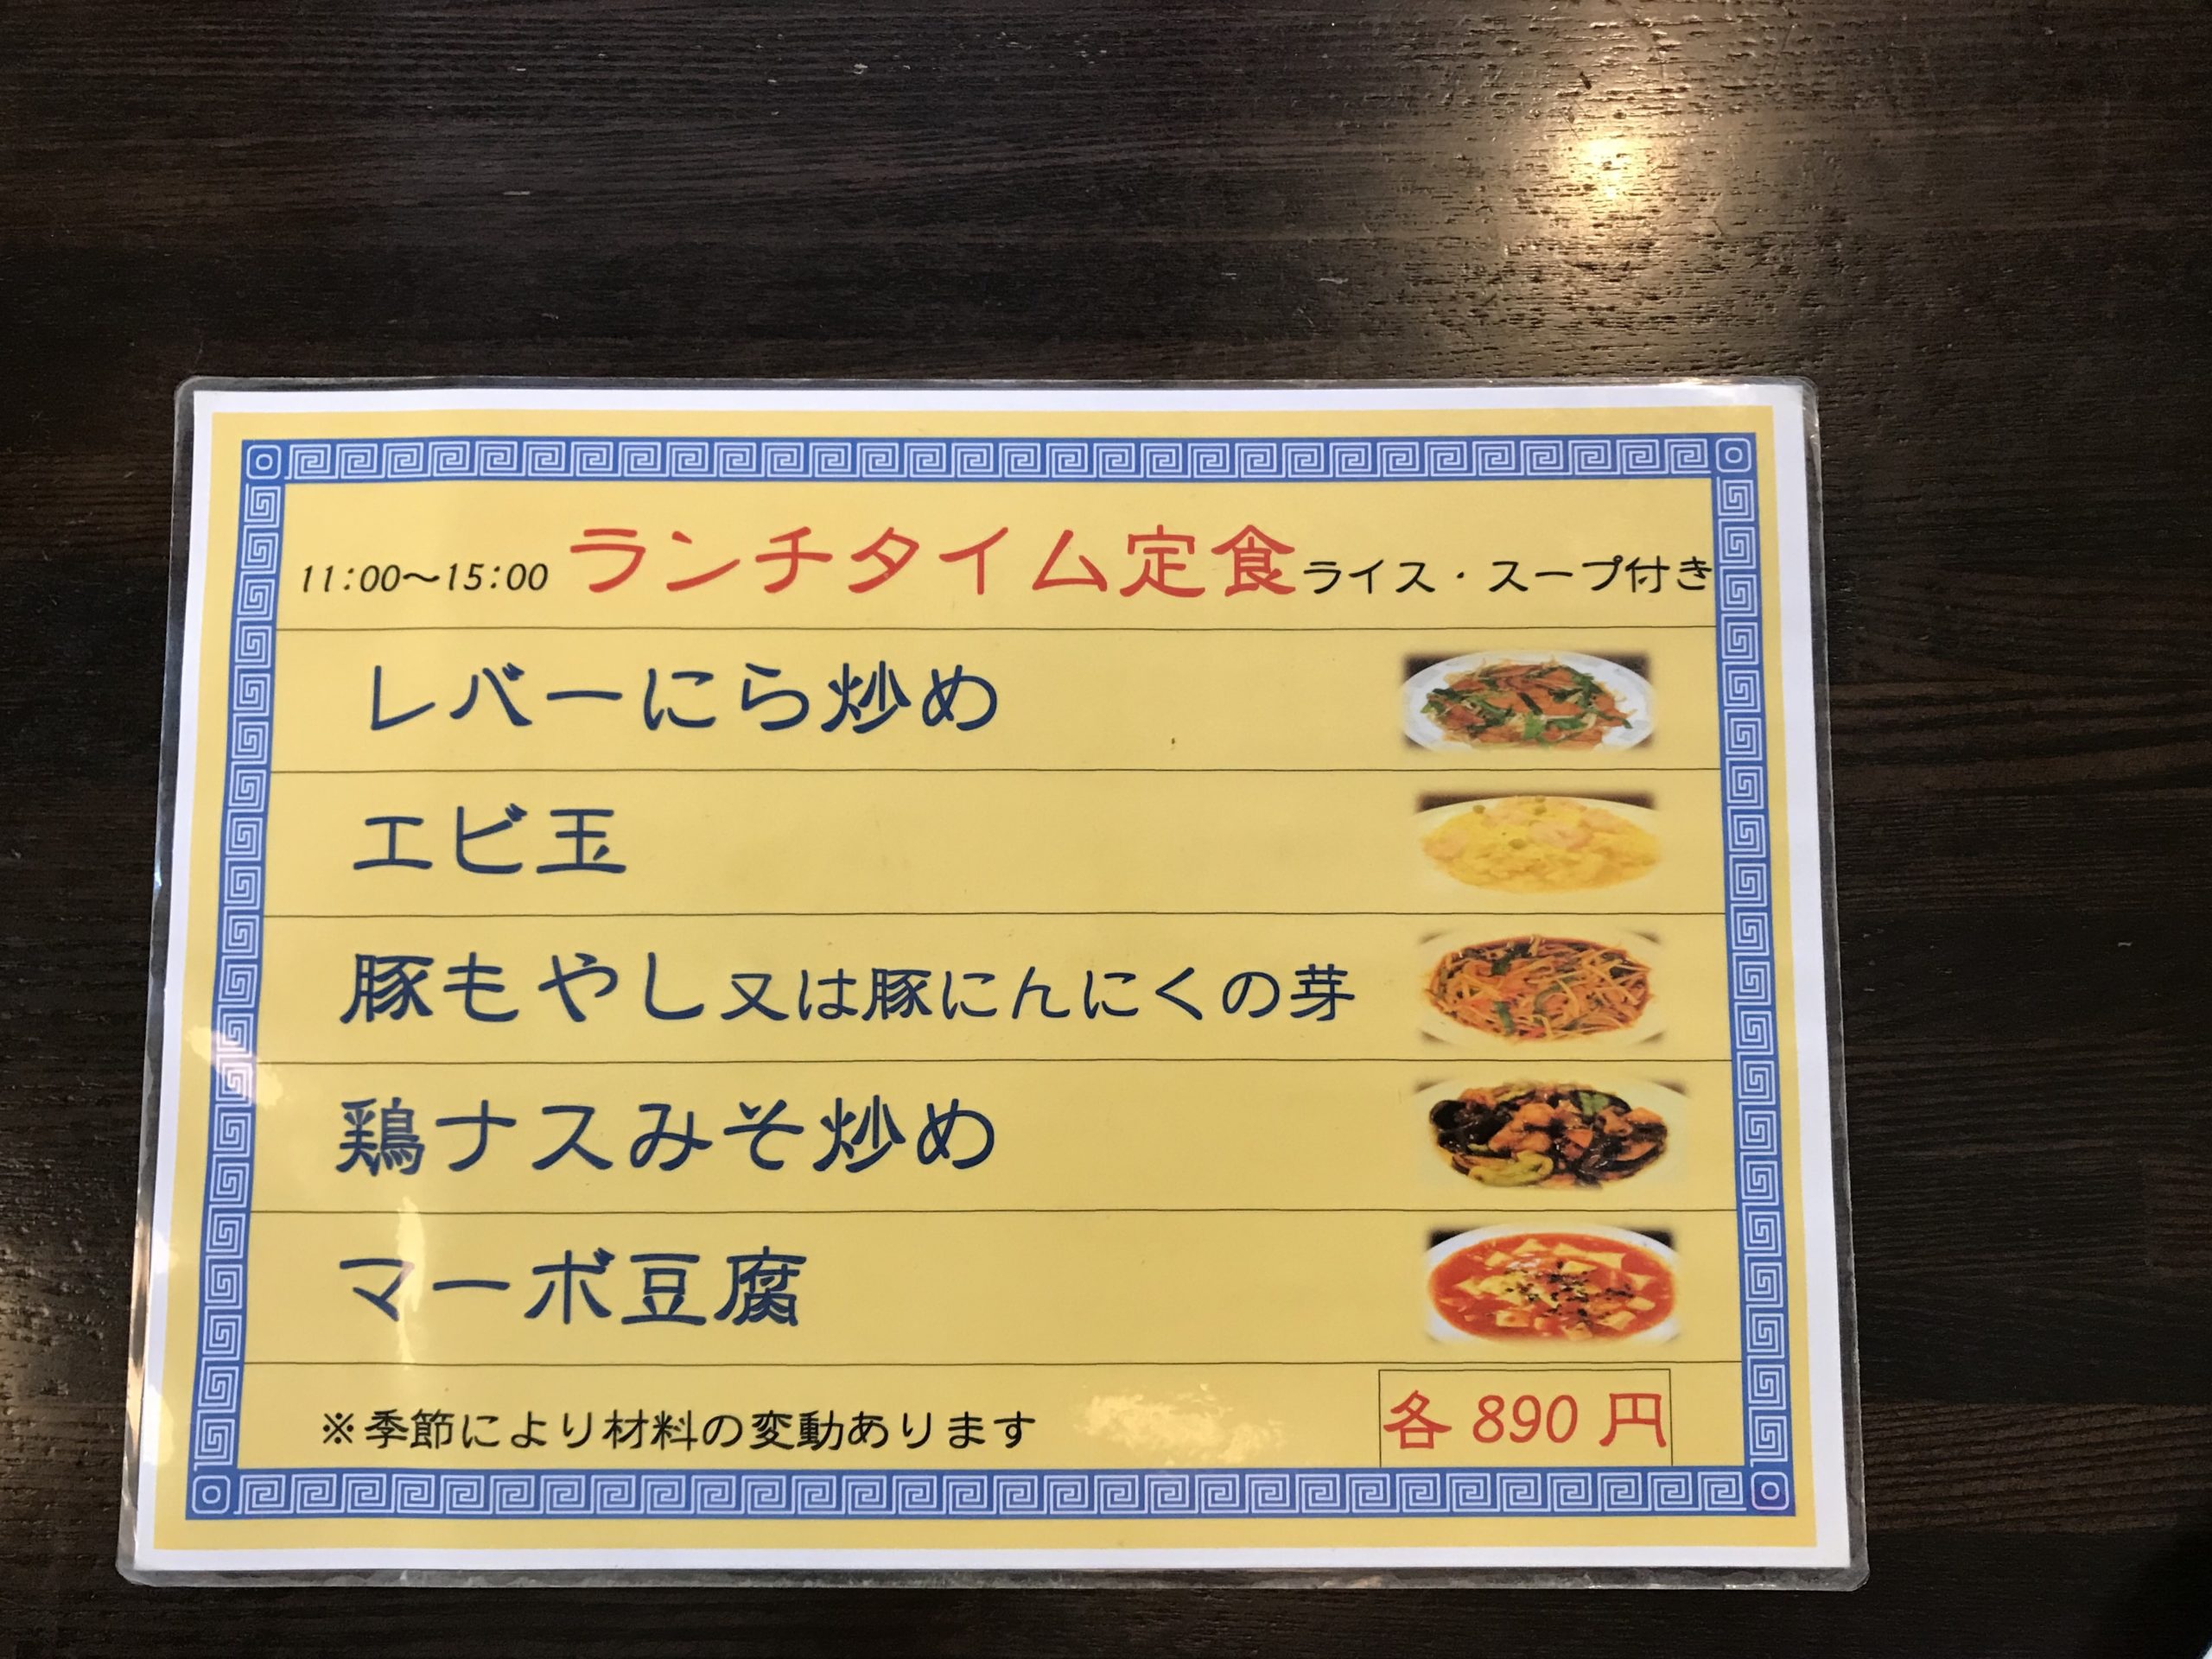 11:00～15:00 ランチタイム定食 ライス・スープ付き
レバーにら炒め
エビ玉
豚もやし又は豚にんにくの芽
鶏ナスみそ炒め
マーボ豆腐
※季節により材料の変動あります
各890円